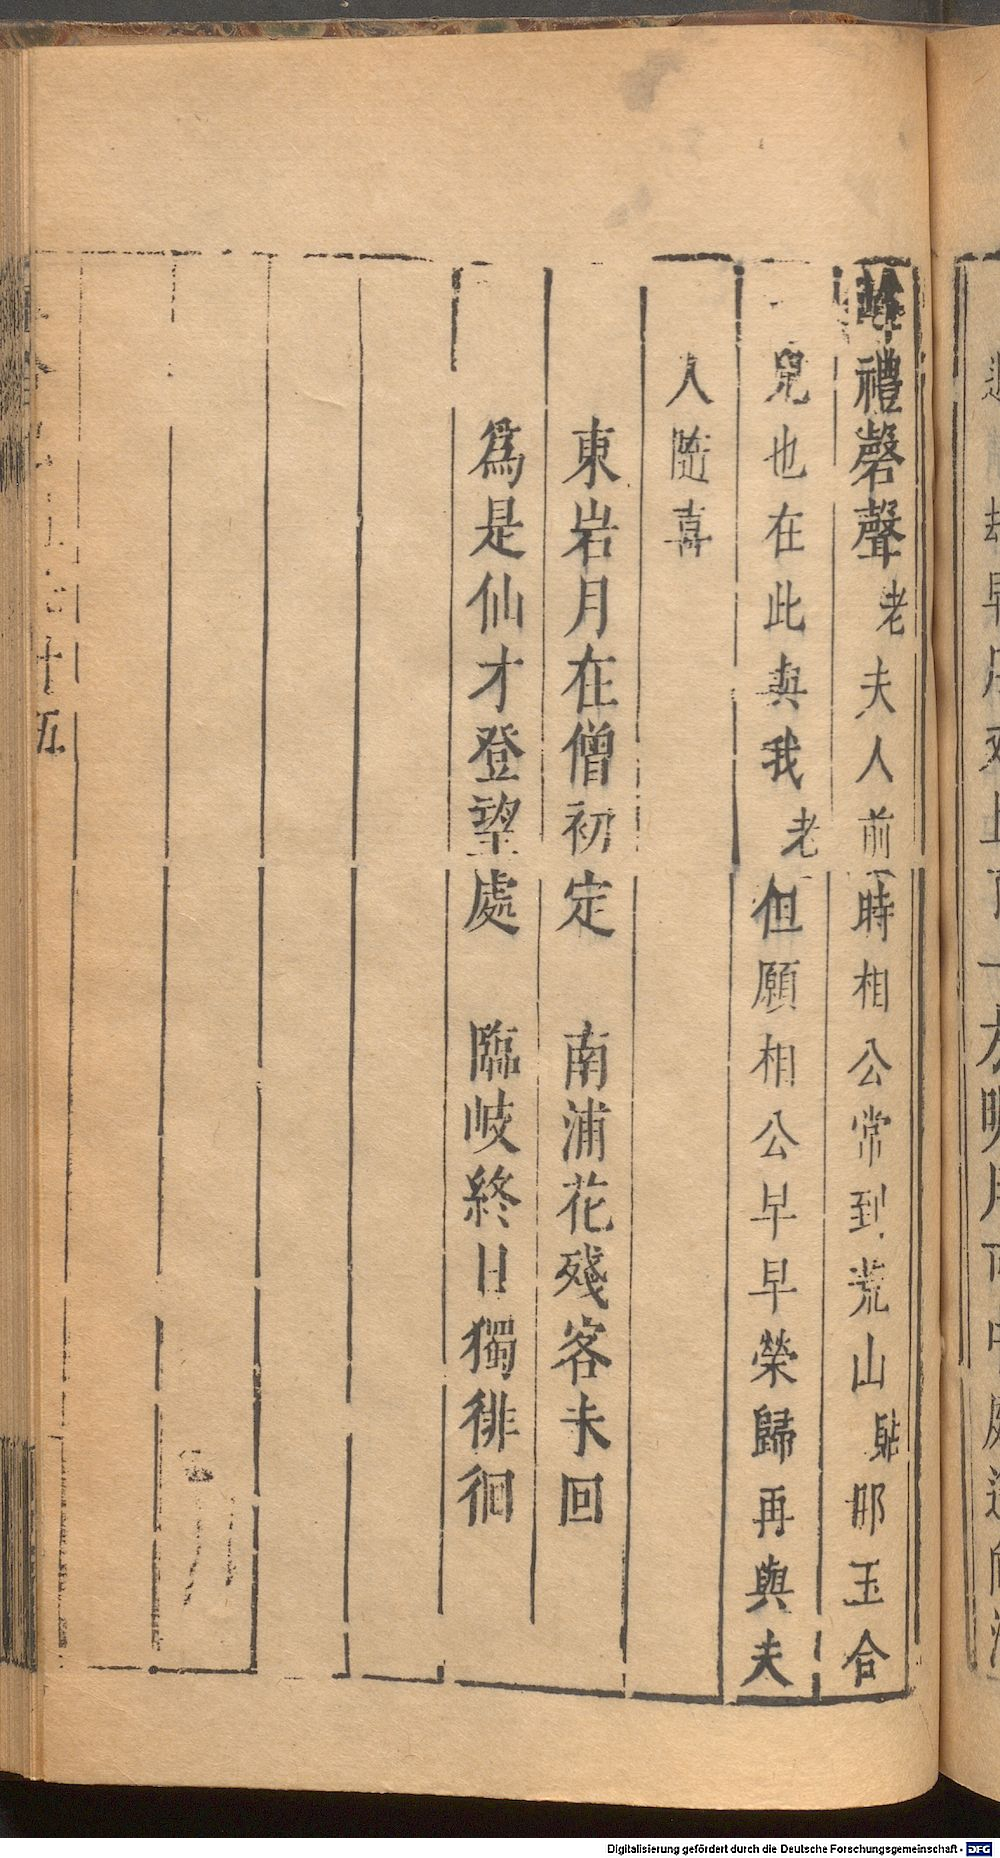 禮磬聲老夫人前時相公常到荒山貼那玉合
兒也在此與我老但願相公早早榮歸再與夫
人隨喜
東岩月在僧初定　南浦花殘客未回
為是仙才登望處　臨岐終日獨徘徊
十五
Digitalisierung gefördert durch die Deutsche Forschungsgemeinschaft - DFG